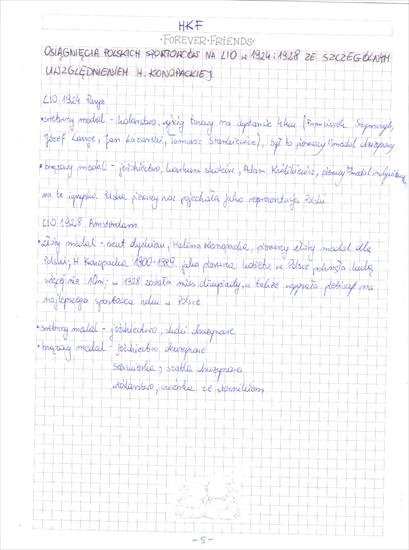 HKF
·FOREVER·FRIENDS·
OSIĄGNIĘCIA POLSKICH SPORTOWCÓW NA LIO w 1924 i 1928 ZE SZCZEGÓLNYM
UWZGLĘDNIENIEM H. KONOPACKIEJ
LIO 1924 Paryż
• srebrny medal - kolarstwo, wyścig torowy na dystansie 4 km (Franciszek Szymczyk,
Józef Lange, Jan Łazarski, Tomasz Stankiewicz), był to pierwszy medal drużynowy
• brązowy medal - jeździectwo, konkurs skoków, Adam Królikiewicz, pierwszy medal indywidualny
na te igrzyska Polska pierwszy raz pojechała jako reprezentacja Polski
LIO 1928 Amsterdam
• złoty medal - rzut dyskiem, Halina Konopacka, pierwszy złoty medal dla
Polski; H. Konopacka 1900-1989. jako pierwsza kobieta w Polsce pchnęła kulą
więcej niż 10m; w 1928 została miss olimpiady, a także wygrała plebiscyt na
najlepszego sportowca roku w Polsce
• srebrny medal - jeździectwo, skoki drużynowe
• brązowy medal - jeździectwo, drużynowe
szermierka, szabla drużynowa
wioślarstwo, czwórka ze sternikiem
-5-